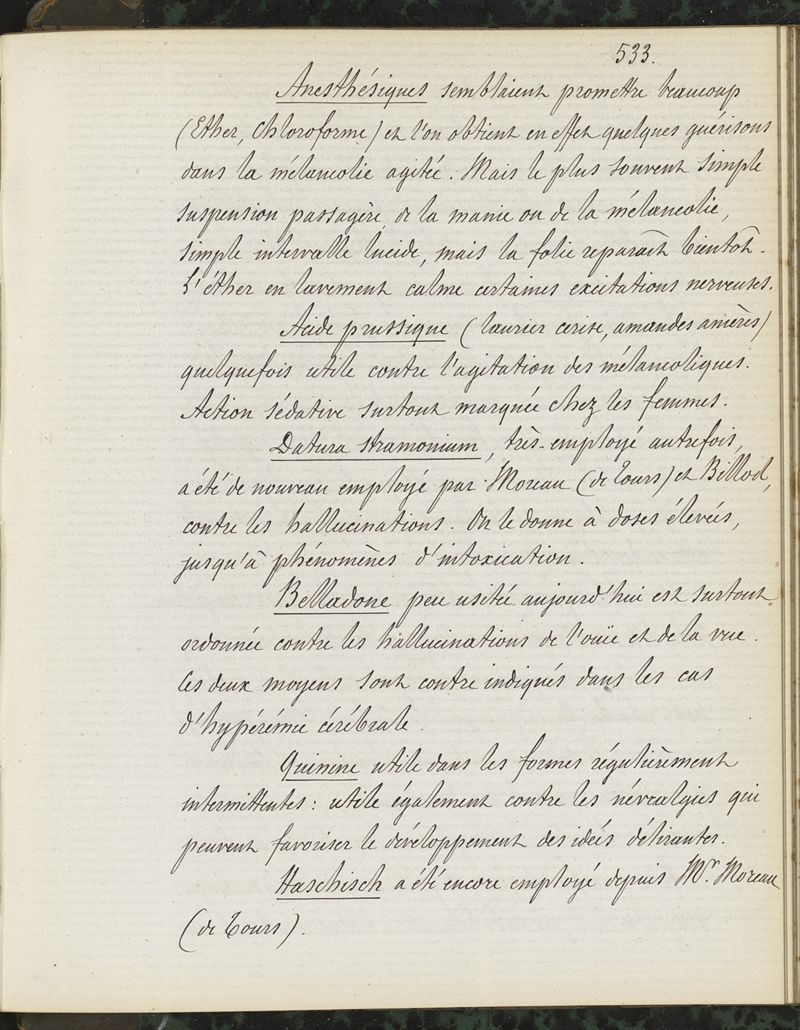 533.
Anesthésiques semblaient promettre beaucoup
(Ether, Chloroforme) et l'on obtient en effet quelques guérisons
dans la mélancolie agitée. Mais le plus souvent simple
suspension passagère, de la manie ou de la mélancolie,
simple intervalle lucide, mais la folie reparaît bientôt.
L'éther en lavement calme certaines excitations nerveuses.
Acide prussique (laurier cerise, amandes amères)
quelquefois utile contre l'agitation des mélancoliques.
Action sédative surtout marquée chez les femmes.
Datura stramonium, très-employé autrefois,
a été de nouveau employé par Moreau (de Tours) et Billod,
contre les hallucinations. On le donne à doses élevées,
jusqu'à phénomènes d'intoxication.
Belladone peu usitée aujourd'hui est surtout
ordonnée contre les hallucinations de l'ouïe et de la vue.
Ces deux moyens sont contre indiqués dans les cas
d'hypérémie cérébrale.
Quinine utile dans les formes régulièrement
intermittentes : utile également contre les névralgies qui
peuvent favoriser le développement des idées délirantes.
Haschisch a été encore employé depuis Mr. Moreau
(de Tours).